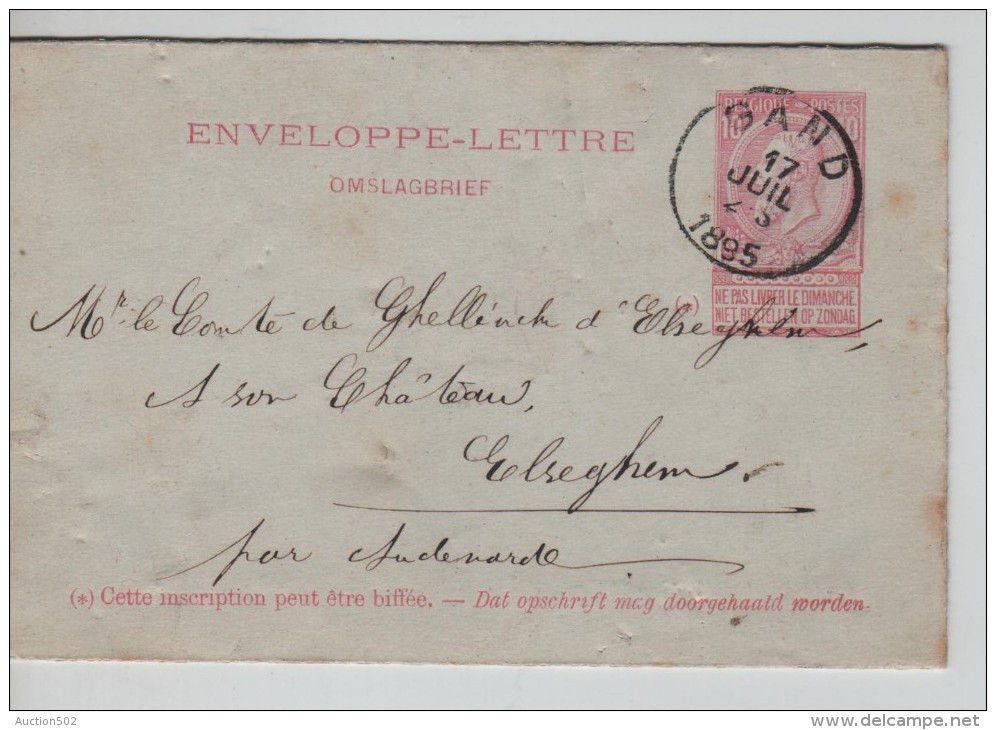 ENVELOPPE-LETTRE
OMSLAGBRIEF
BELGIQUE POSTES
10 10
GAND
17
JUIL
1895
(*) NE PAS LIVRER LE DIMANCHE
NIET BESTELLEN OP ZONDAG
Mr. le Comte de Ghellinck d'Elseghem,
A son Château,
Elseghem.
par Audenarde
(*) Cette inscription peut être biffée. — Dat opschrift mag doorgehaald worden.
Auction502
delcampe.net